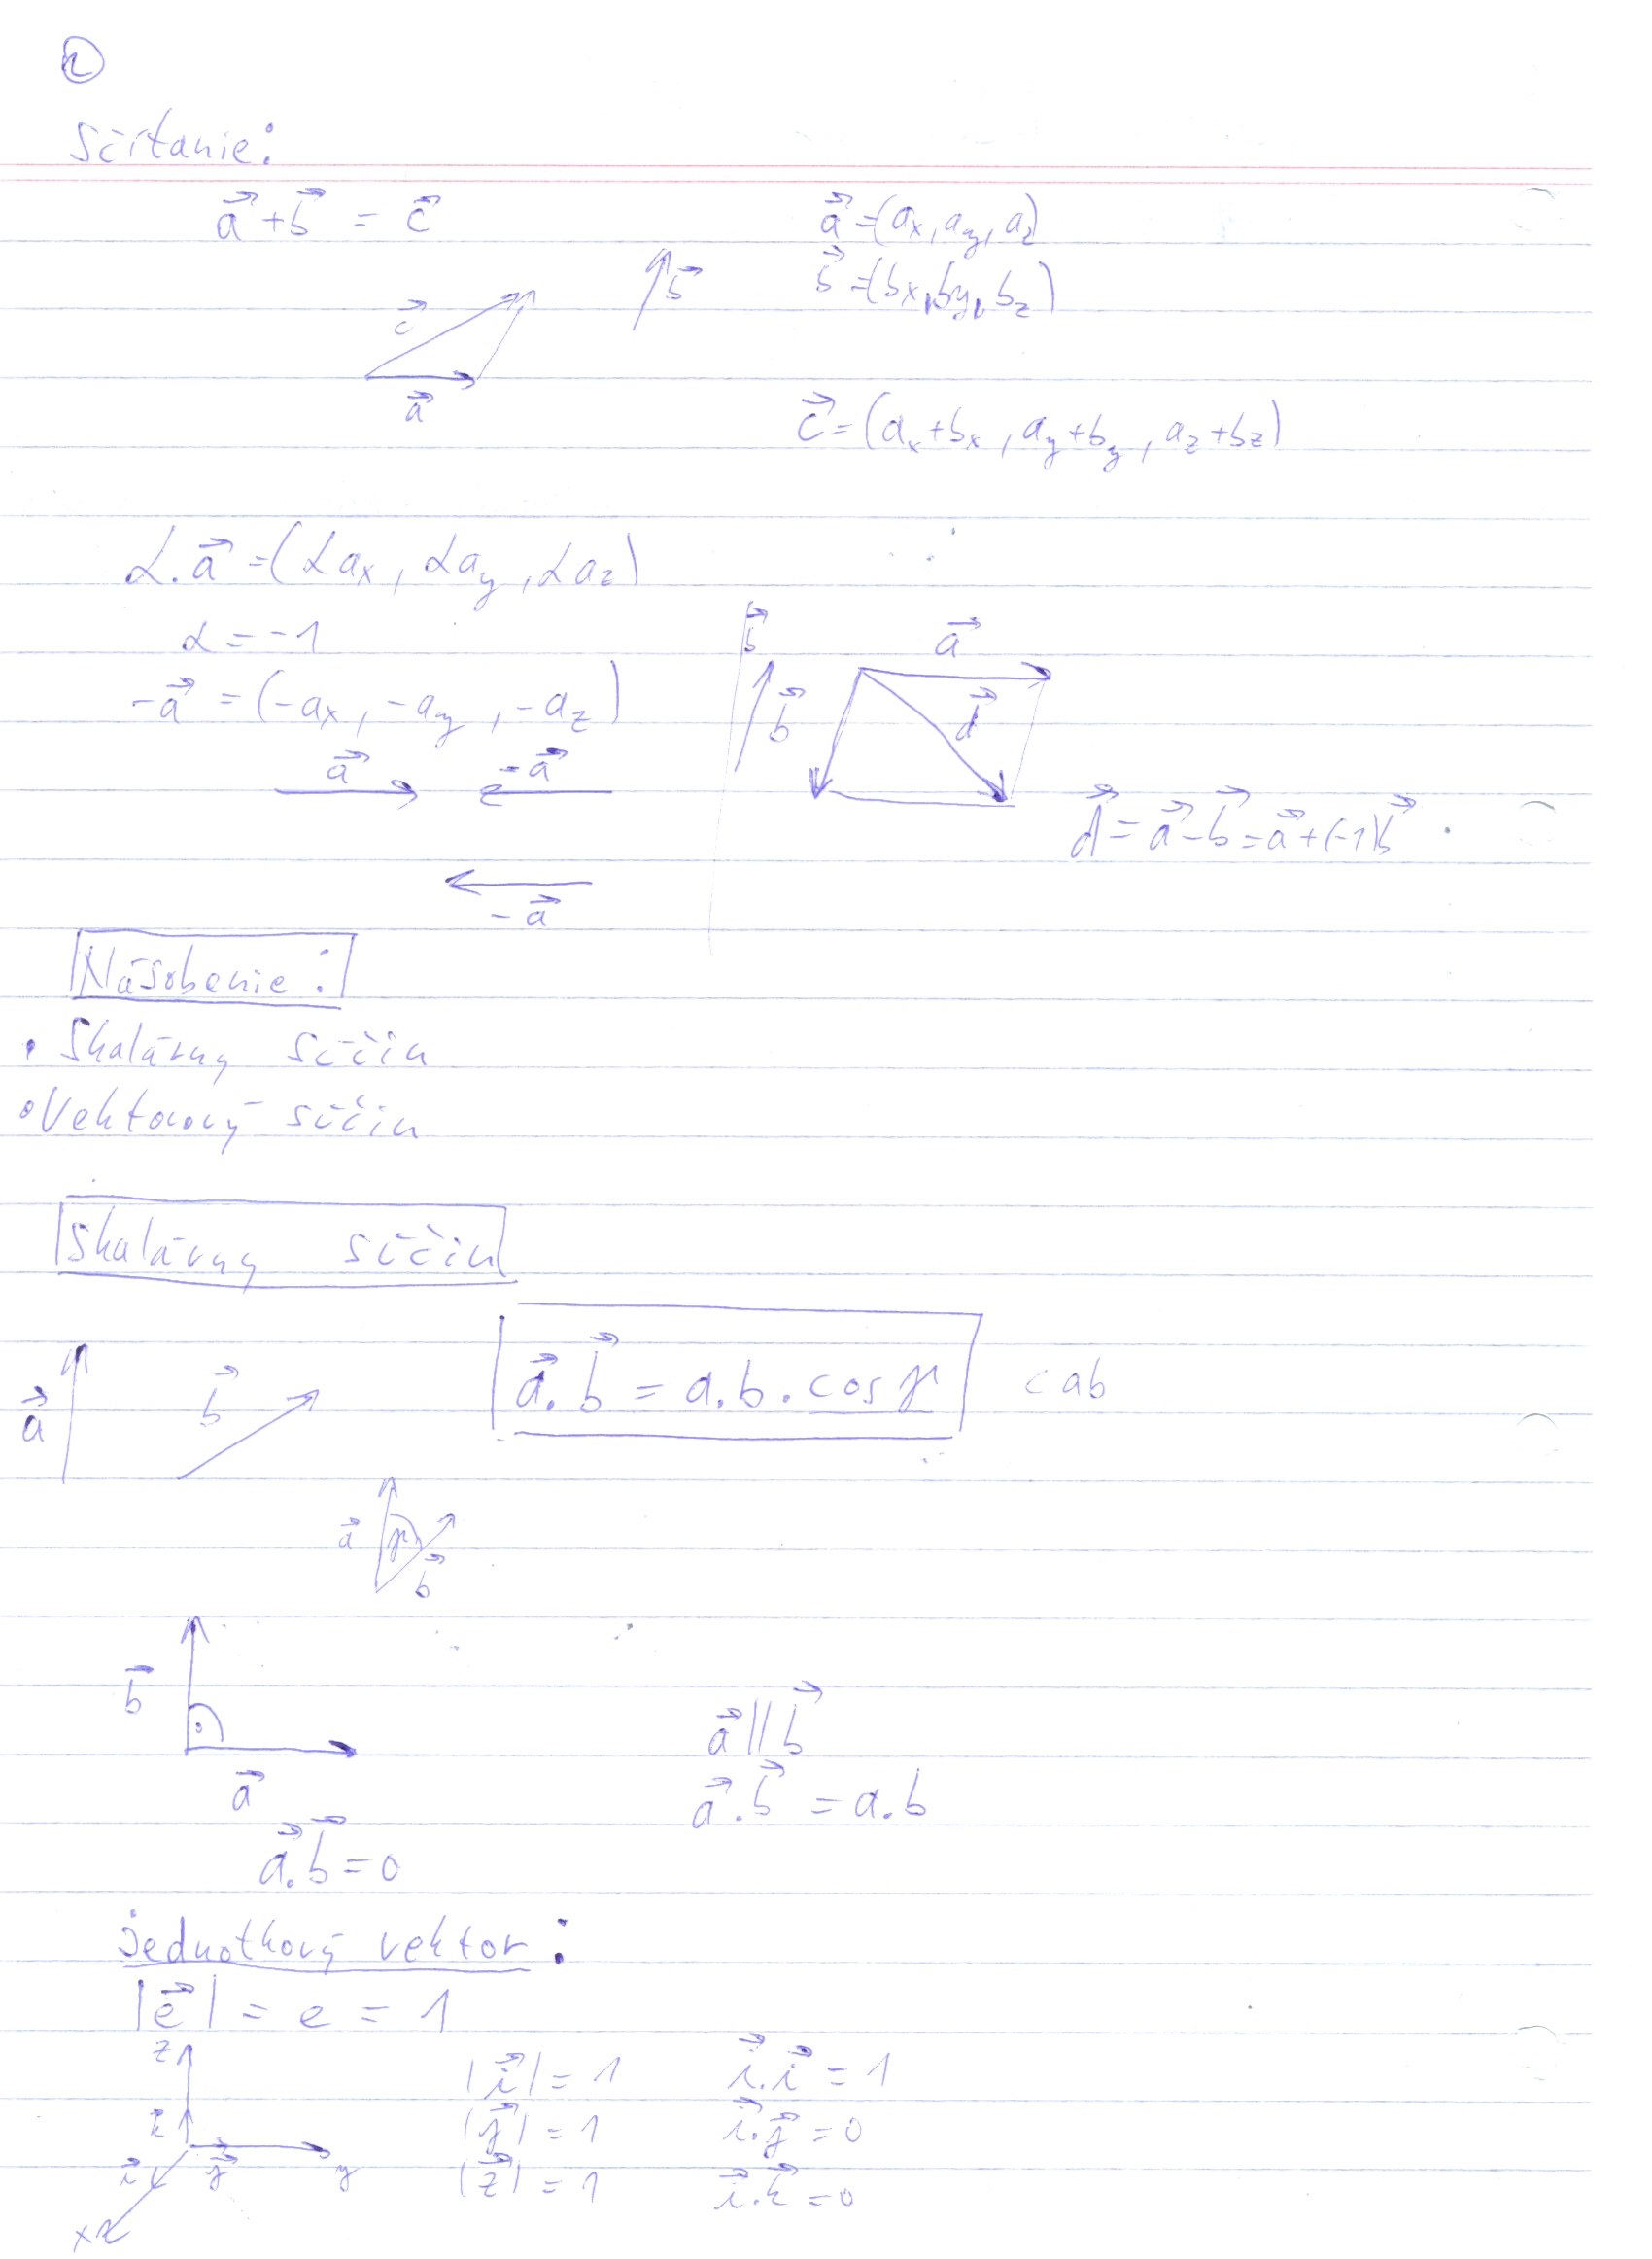 2
Sčítanie:
a⃗ + b⃗ = c⃗
a⃗ = (ax, ay, az)
b⃗ = (bx, by, bz)
c⃗
b⃗
a⃗
c⃗ = (ax + bx, ay + by, az + bz)
α.a⃗ = (αax, αay, αaz)
α = -1
-a⃗ = (-ax, -ay, -az)
a⃗
-a⃗
-a⃗
b⃗
b⃗
a⃗
d⃗
d⃗ = a⃗ - b⃗ = a⃗ + (-1)b⃗
Násobenie:
• Skalárny súčin
• Vektorový súčin
Skalárny súčin
a⃗
b⃗
a⃗.b⃗ = a.b.cos γ
cab
a⃗
γ
b⃗
b⃗
a⃗
a⃗.b⃗ = 0
a⃗ || b⃗
a⃗.b⃗ = a.b
jednotkový vektor:
|e⃗| = e = 1
z
k⃗
i⃗
j⃗
y
x
|i⃗| = 1
i⃗.i⃗ = 1
|j⃗| = 1
i⃗.j⃗ = 0
|z⃗| = 1
i⃗.k⃗ = 0